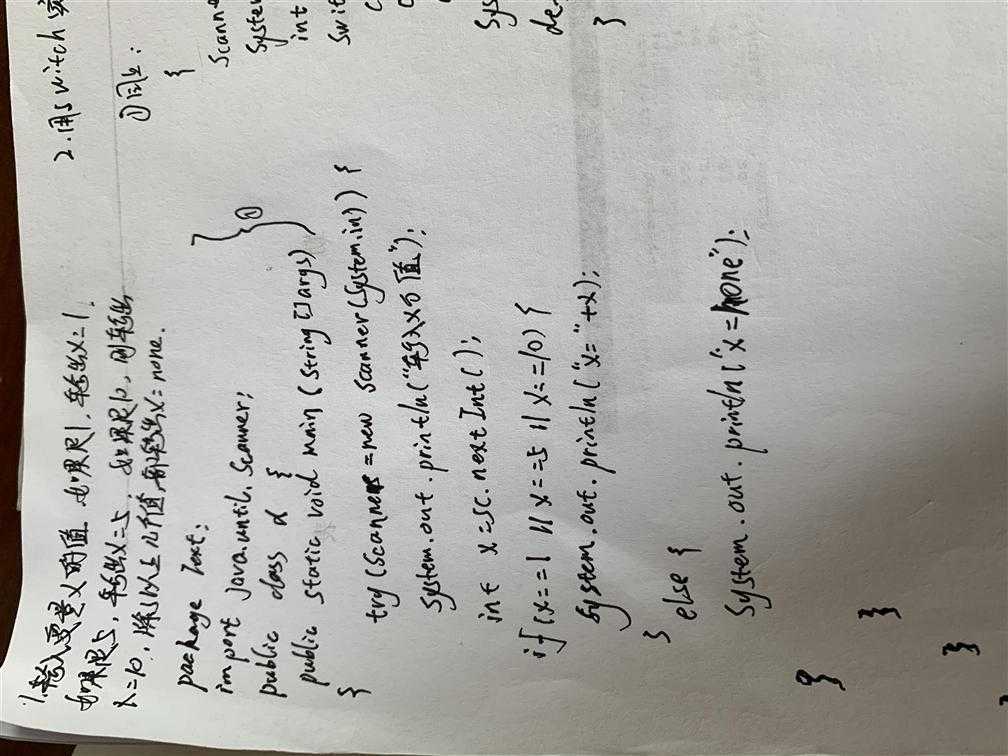 1.输入变量x的值,如果是1,输出x=1,
如果是5,输出x=5,如果是10,则输出
x=10,除了以上几个值,都输出x=none.
package Text;
import java.until.Scanner;
public class d {
public static void main (String []args)
{
try(Scanner=new Scanner(System.in)) {
System.out.println("输入x的值");
int x=sc.nextInt();
if(x==1 || x==5 || x==10) {
System.out.println("x="+x);
}
else {
System.out.println("x=none");
}
}
}
①
2.用switch
①同上:
{
Scanne
System
int
Swit
Sys
de
}